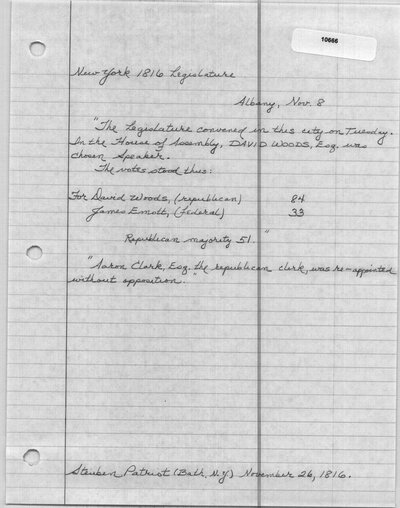 10666
New York 1816 Legislature
Albany, Nov. 8
"The Legislature convened in this city on Tuesday.
In the House of Assembly, DAVID WOODS, Esq. was
chosen Speaker.
The votes stood thus:
For David Woods, (republican) 84
James Emott, (federal) 33
Republican majority 51."
"Aaron Clark, Esq. the republican clerk, was re-appointed
without opposition.
Steuben Patriot (Bath, N.Y.) November 26, 1816.